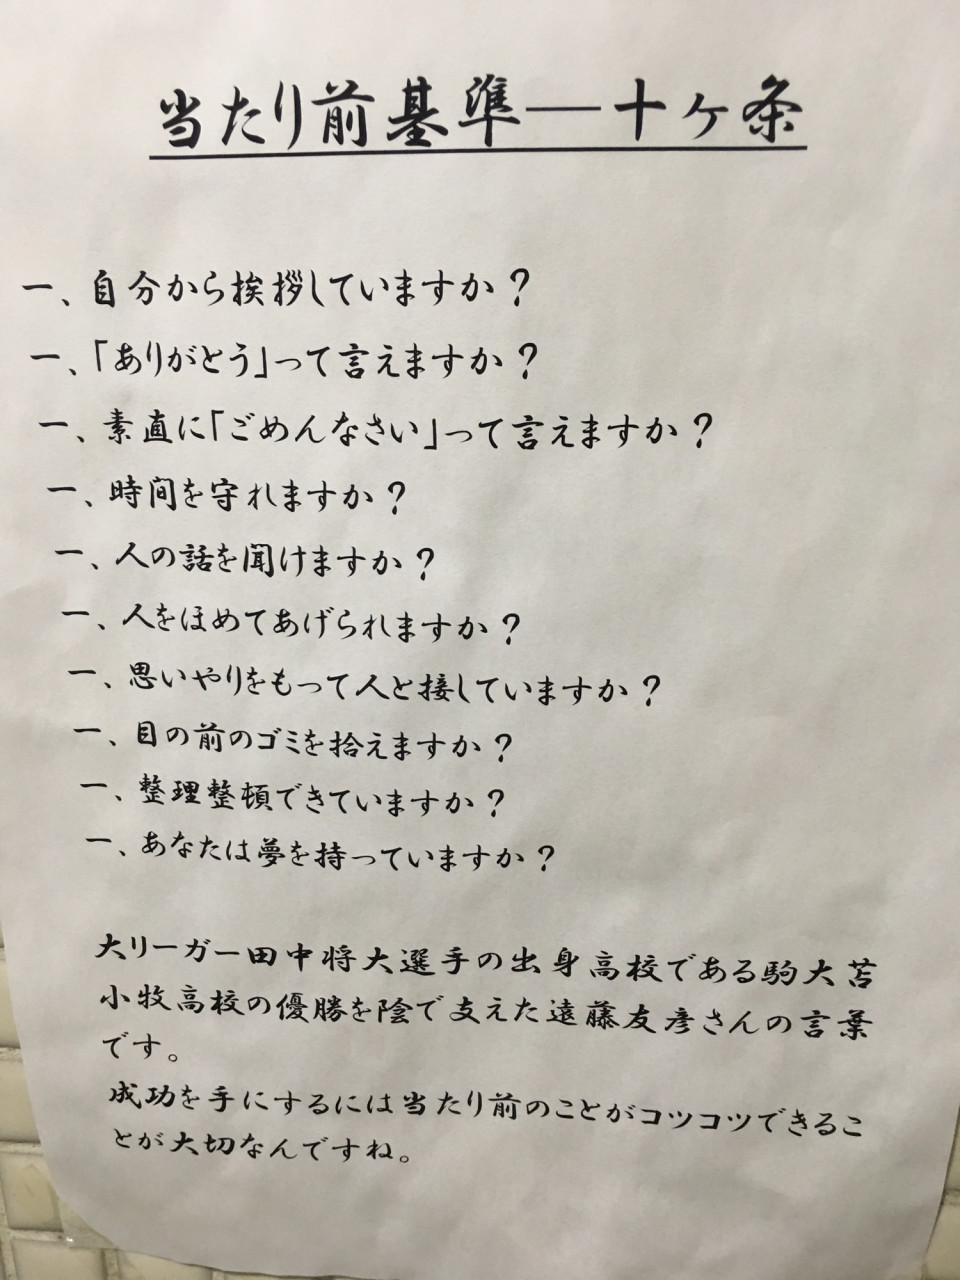 当たり前基準―十ヶ条
一、自分から挨拶していますか？
一、「ありがとう」って言えますか？
一、素直に「ごめんなさい」って言えますか？
一、時間を守れますか？
一、人の話を聞けますか？
一、人をほめてあげられますか？
一、思いやりをもって人と接していますか？
一、目の前のゴミを拾えますか？
一、整理整頓できていますか？
一、あなたは夢を持っていますか？
大リーガー田中将大選手の出身高校である駒大苫
小牧高校の優勝を陰で支えた遠藤友彦さんの言葉
です。
成功を手にするには当たり前のことがコツコツできるこ
とが大切なんですね。